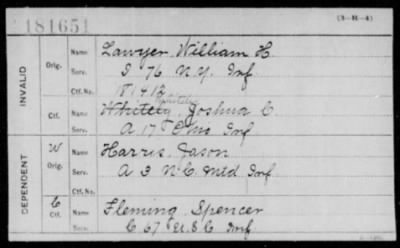 181651
(3-M-4)
INVALID
Orig.
Name
Lawyer, William H.
Serv.
I 76 N.Y. Inf
Ctf. No.
Ctf.
Name
Whitely, Joshua C.
Serv.
A 17 Inf
DEPENDENT
W
Orig.
Name
Harris, Jason
Serv.
A 3 N.C. Mtd Inf
Ctf. No.
C
Ctf.
Name
Fleming Spencer
Serv.
C 67 U.S.C. Inf